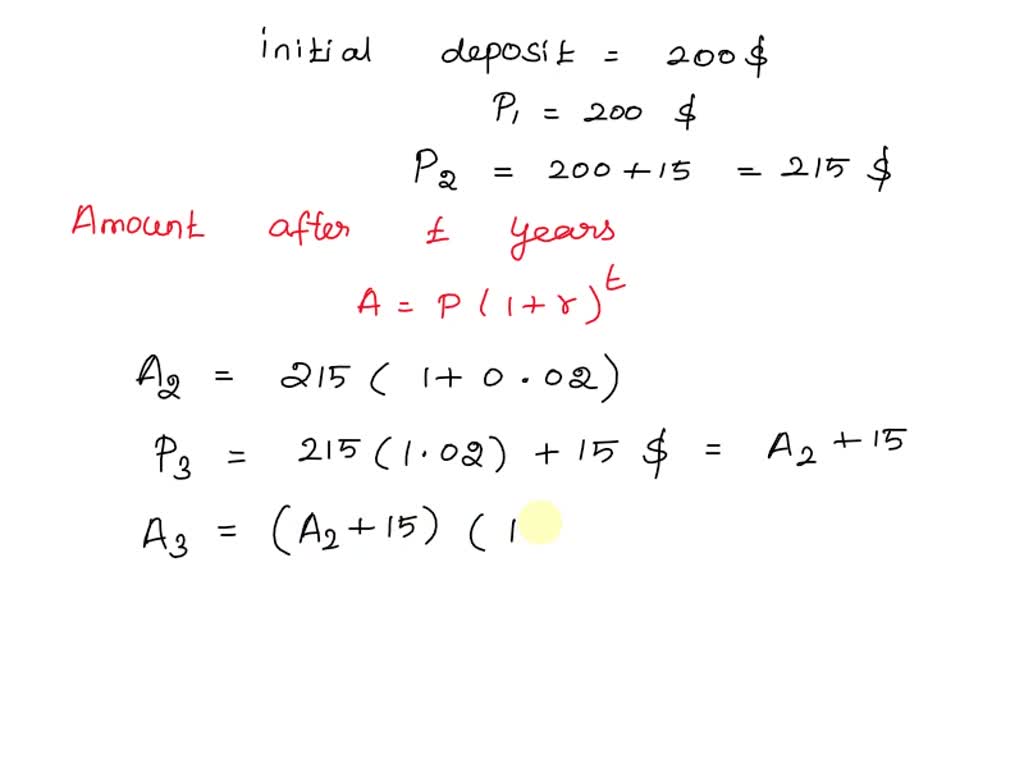 initial deposit = 200 $
P₁ = 200 $
P₂ = 200 + 15 = 215 $
Amount after t years
A = P ( 1 + r )ᵗ
A₂ = 215 ( 1 + 0.02 )
P₃ = 215 ( 1.02 ) + 15 $ = A₂ + 15
A₃ = ( A₂ + 15 ) ( 1